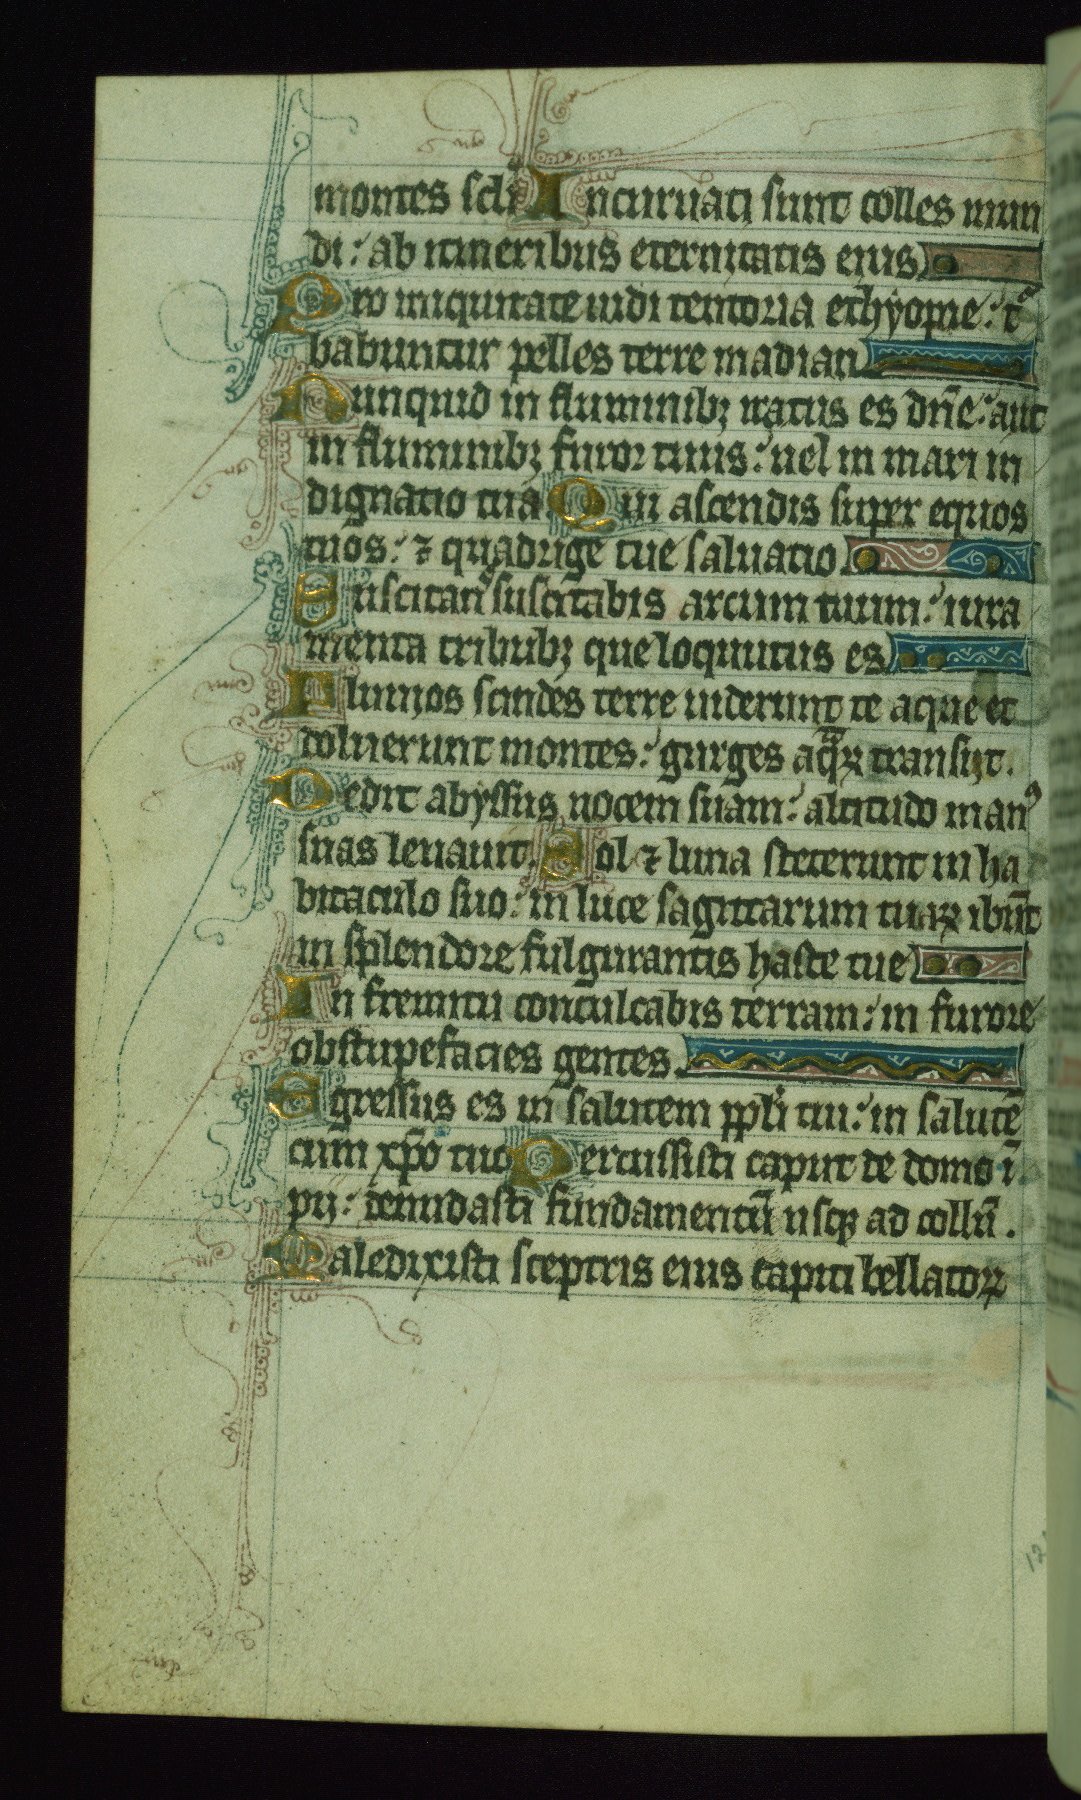 montes scłi Incuruati sunt colles mun
di: ab itineribus eternitatis eius
Pro iniquitate uidi tentoria ethyopie: t̃
babuntur pelles terre madian
Nunquid in fluminibꝫ iratus es dñe: aut
in fluminibꝫ furor tuus: uel in mari in
dignatio tua Qui ascendis super equos
tuos: ⁊ quadrige tue saluatio
Suscitanˢ suscitabis arcum tuum: iura
menta tribubꝫ que loquutus es
Fluuios scindes terre uiderunt te aque et
doluerunt montes: gurges aqꝝ transijt.
Dedit abyssus uocem suam: altitudo manꝰ
suas leuauit. Sol ⁊ luna steterunt in ha
bitaculo suo: in luce sagittarum tuaꝝ ibũt
in splendore fulgurantis haste tue
In fremitu conculcabis terram: in furore
obstupefacies gentes
Egressus es in salutem ppłi tui: in salutẽ
cum xpõ tuo Percussisti caput de domo ĩ
pij: denudasti fundamentũ usqꝫ ad collũ.
Maledixisti sceptris eius capiti bellatoꝝ